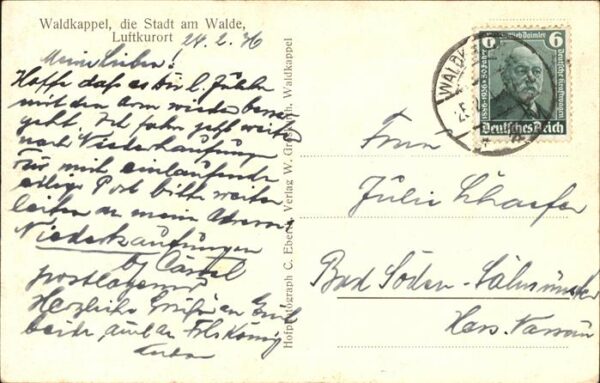 Waldkappel, die Stadt am Walde,
Luftkurort 24. 2. 36
Meine Lieben!
Hoffe daß es Dir l. Julchen
mit dem Arm wieder besser
geht. Ich fahre jetzt weiter
nach Niederkaufungen
Für mich einlaufende
eilige Post bitte weiter
leiten an meine Adresse
Niederkaufungen
bei Cassel
postlagernd
Herzliche Grüße an Euch
beide, auch an Frls König
Hofphotograph C. Eberth, Verlag W. Waldkappel
6 Friedrich Daimler 6
1886-1936 50 Jahre
Deutsche Kraftwagen
Deutsches Reich
WALDK
Frau
Julie Schaefer
Bad Soden-Salmünster
Hess. Nassau